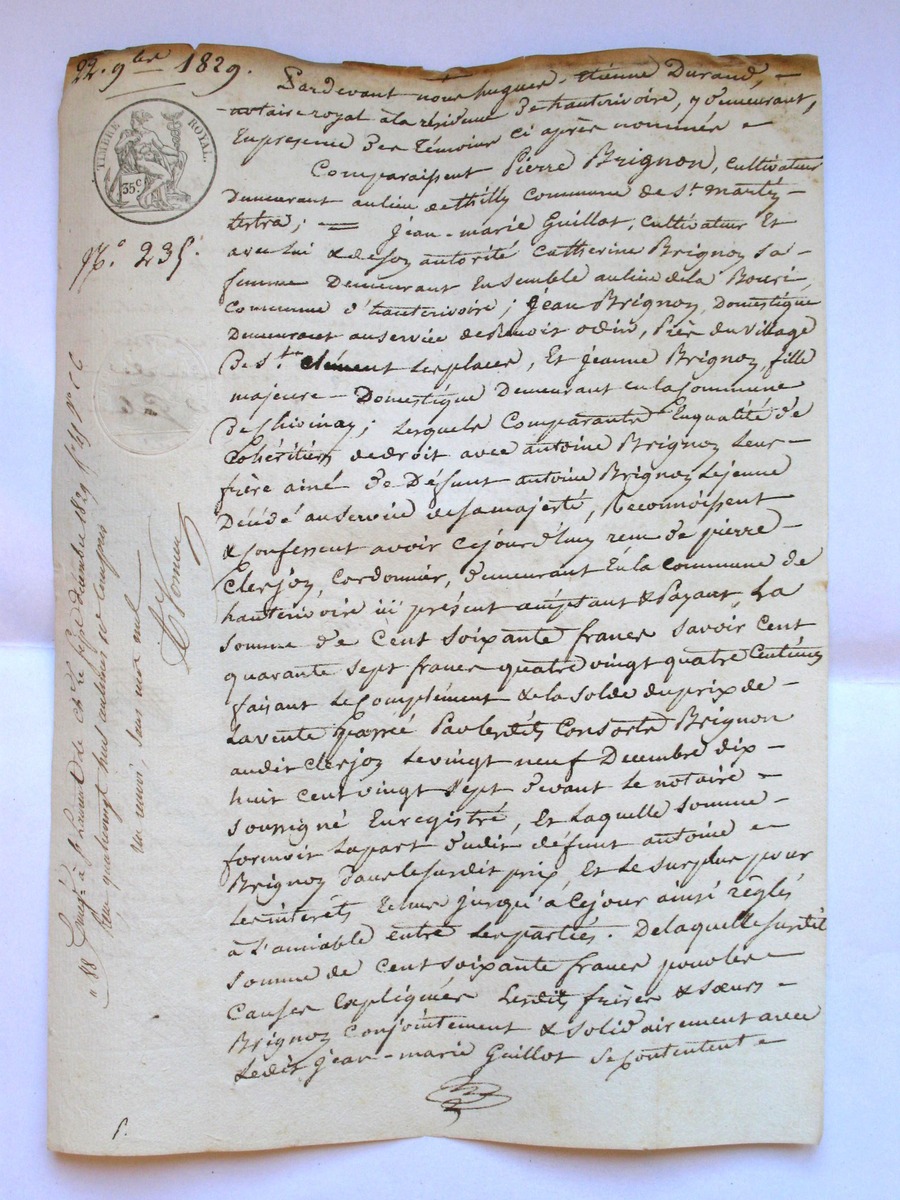 22. 9bre 1829.
TIMBRE ROYAL.
35c
N.° 235.
Pardevant nous hugues-Etienne Durand,
notaire royal à la résidence d'hauterivoire, y demeurant,
En presence des Témoins Ci après nommés
Comparaissent Pierre Brignon, cultivateur
Demeurant au lieu de Commune de St. martin
lestra; = Jean-marie Guillot, Cultivateur Et
avec lui & de son autorité Catherine Brignon sa
femme Demeurant Ensemble au lieu de la Bouri,
Commune d'hauterivoire; Jean Brignon, Domestique
Demeurant au service de Benoit odin, Père du village
De St. clément les places, Et Jeanne Brignon, fille
majeure Domestique Demeurant en la Commune
De Chivinay; Lesquels Comparants Enqualité de
Cohéritiers de droit avec antoine Brignon Leur
frère ainé de Défunt antoine Brignon Lejeune
Décédé au service de sa majesté, Reconnoissent
& Confessent avoir Cejourd'huy reçu de pierre
Clerjon, Cordonnier, demeurant En la Commune de
hauterivoire ici présent acceptant & Payant La
Somme de Cent soixante francs savoir Cent
quarante sept francs quatre vingt quatre Centimes
faisant Le Complément & la solde du prix de
La vente passée Par lesdits Consorts Brignon
audit Clerjon Le vingt neuf Decembre dix
huit Cent vingt Sept devant Le notaire
soussigné Enregistré, Et Laquelle somme
formoit La part dudit défunt antoine
Brignon dans le susdit prix, Et Le surplus pour
Les intérêts Echus jusqu'à Cejour ainsi règlés
à L'amiable entre Les parties. De laquelle susdite
somme de Cent soixante francs pour les
Causes Expliquées Lesdits frères & sœurs
Brignon Conjointement & solidairement avec
Ledit Jean-marie Guillot se Contentent
Enregé à St. Laurent de ce sept décembre 1829 fo 41 Vo C 6
Reçu quatrevingt huit centimes 10e compris
un renvoi, sans mot nul